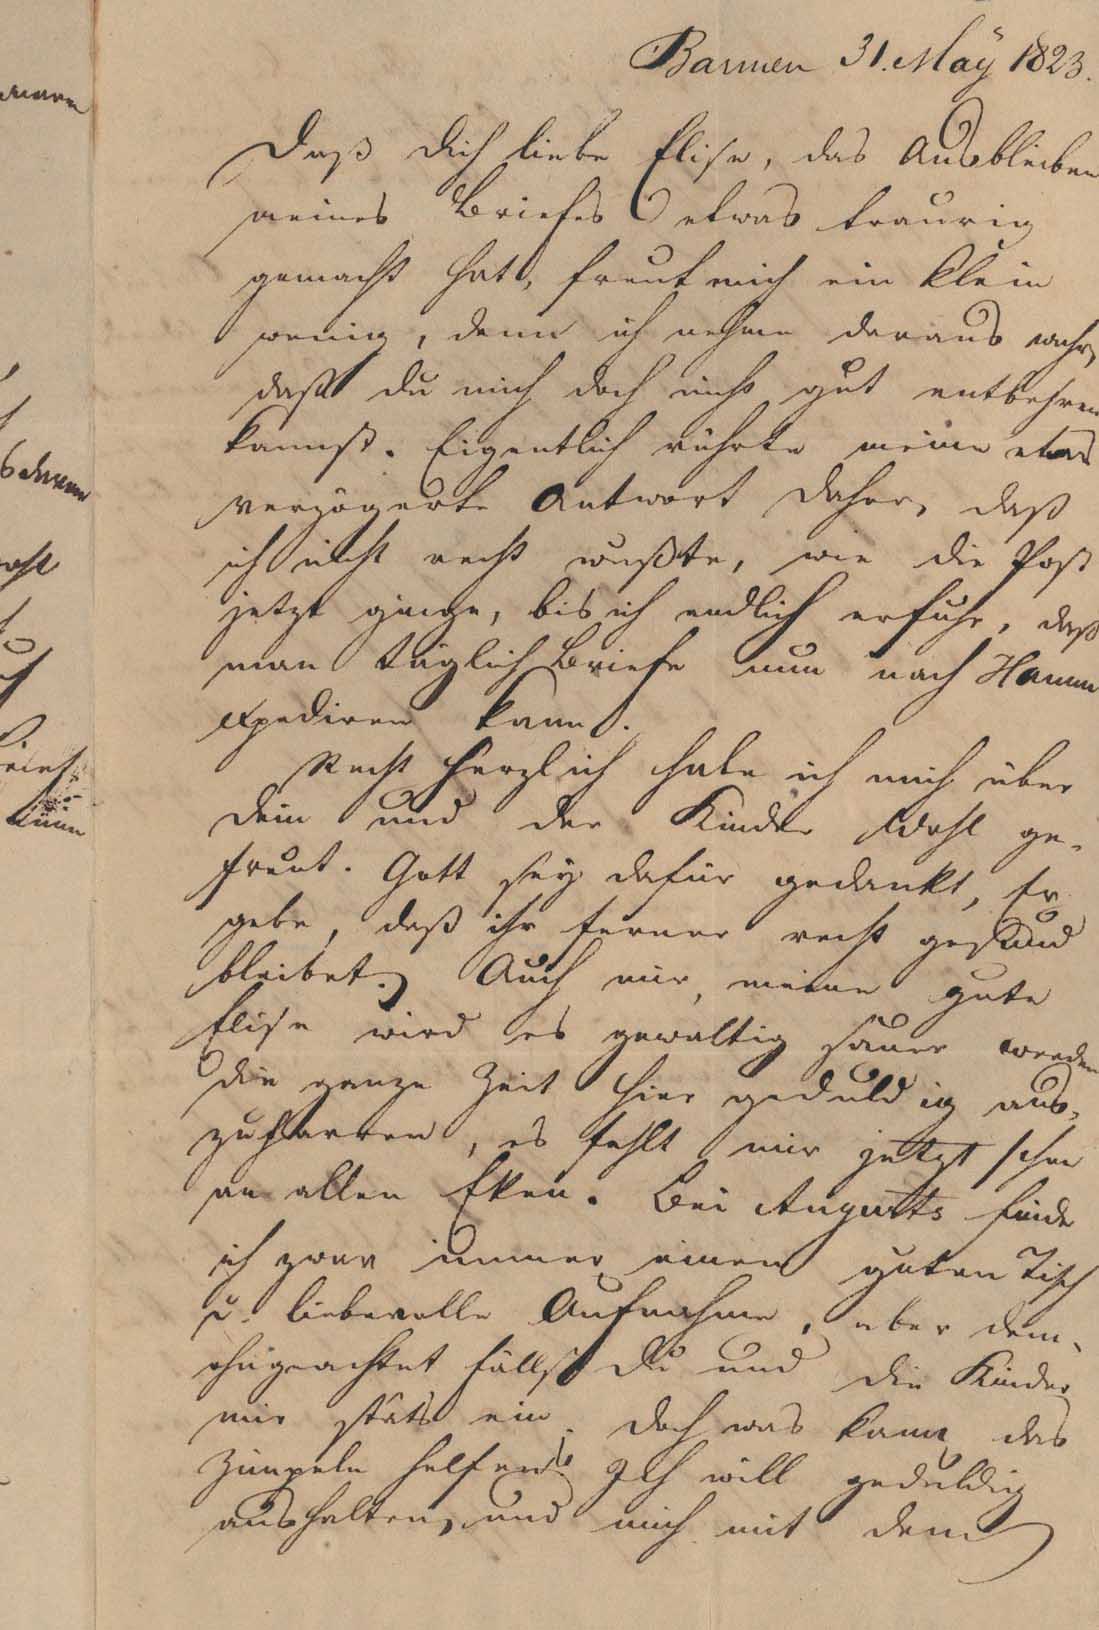 Barmen 31. Maÿ 1823.
Daß Dich liebe Elise, das Ausbleiben
meines Briefes etwas traurig
gemacht hat, freut mich ein klein
wenig, denn ich nehme daraus wahr,
daß du mich doch nicht gut entbehren
kannst. Eigentlich rührte meine etwas
verzögerte Antwort daher, daß
ich nicht recht wußte, wie die Post
jetzt ginge, bis ich endlich erfuhr, daß
man täglich Briefe nun nach Hamm
expediren kann.
Recht herzlich habe ich mich über
Dein und der Kinder Wohl ge-
freut. Gott sey dafür gedankt, Er
gebe, daß ihr ferner recht gesund
bleibet. Auch mir, meine gute
Elise wird es gewaltig sauer werden
die ganze Zeit hier geduldig aus-
zuharren, es fehlt mir jetzt schon
an allen Eken. Bei Augusts finde
ich zwar immer einen guten Tisch
u. liebevolle Aufnahme, aber dem-
ohngeachtet fällst Du und die Kinder
mir stäts ein. Doch was kann das
helfen? Ich will geduldig
aushalten, und mich mit dem